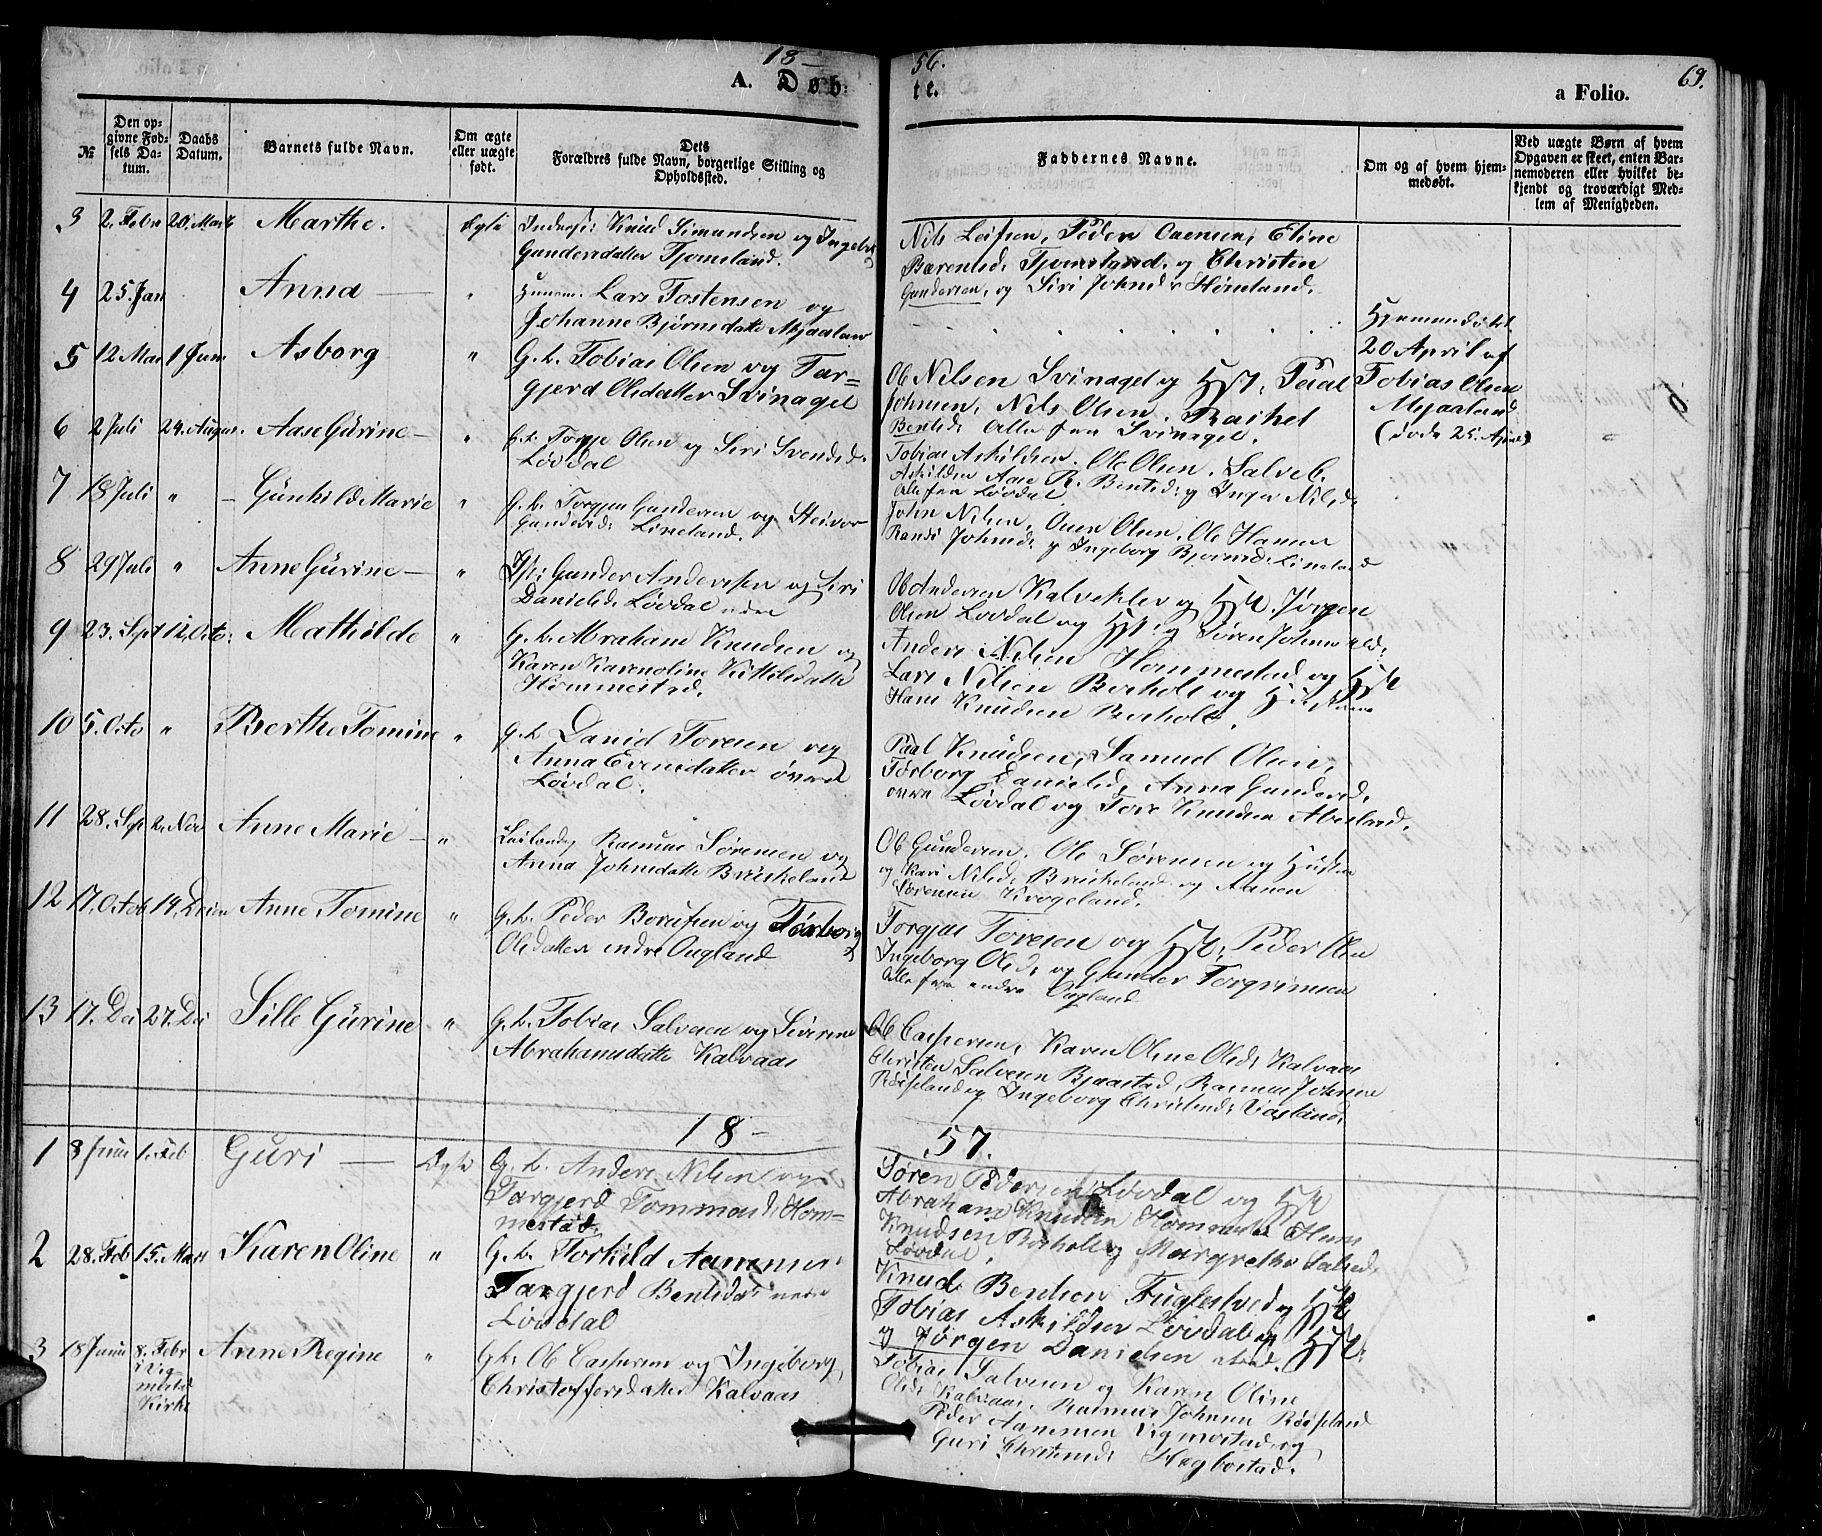 18– 56.
69.
A. Døb- te.
a Folio.
№
Den op-
givne Fød-
sels Da-
tum.
Daabs
Datum.
Barnets fulde Navn.
Om ægte
eller uægte
født.
Dets
Forældres fulde Navn, borgerlige Stilling og
Opholdssted.
Faddernes Navne.
Om og af hvem hjem-
medøbt.
Ved uægte Børn af hvem
Opgaven er skeet, enten Bar-
nemoderen eller hvilket be-
kjendt og troværdigt Med-
lem af Menigheden.
3 2. Febr 20. Marts Marthe. Ægte
Knud Simundsen og Ingebr
Gundersdatter Tjomsland.
Nils Leifsen, Peder Omensen, Eline
Bærentsd. Tjomsland. og Christen
Gundersen, og Siri Johnsd. Homeland.
4 25. Jan Anna – "
Lars Tostensen og
Johanne Bjørnsdatte Mjaaland
Hjemmedøbt
20 April af
Tobias Olsen
Mjaaland
(døde 25. April)
5 12 Mai 1 Juni Asborg "
G. b. Tobias Olsen og Tar=
gjerd Olsdatter Svinagel
Ole Nilsen Svinagel og Hst. Paal
Johnsen, Nils Olsen. Rachel
Bentsd. Alle fra Svinagel.
6 2 Juli 24. August. Aase Gürine – "
G. b. Torje Olsen og Siri Svendsd.
Løvdal
Tobias Askildsen. Ole Olsen. Salve B.
Askildsen Aase R. Bentsd. og Inger Nilsd.
Alle fra Løvdal
7 18 Juli " – Günhild Marie "
G. b. Torgjus Gundersen og Heivor
Gundersd. Lineland.
John Nilsen. Omen Olsen. Ole Hansen
Randi Johnsd. og Ingeborg Bjørnsd. Lineland
8 29 Juli " Anne Gürine – "
Gunder Anderssen og Siri
Danielsd. Løvdal
Ole Andersen Kalvekler og Hst. Jørgen
Olsen Løvdal og Hst. og Søren Johnsen
9 23. Sept 12. Octo. Mathilde "
G. b. Abraham Knudsen og
Karen Karenoline Kittilsdatte
Hommestad.
Anders Nilsen Hommestad og Hst
Lars Nilsen Berhole og Hst
Hans Knudsen Berhole.
10 5. Octo " Berthe Tomine "
G. b. David Toresen og
Anna Evensdatter øvre
Løvdal.
Paal Knudsen, Samuel Olsen,
Torborg Danielsd. Anna Gundersd.
øvre Løvdal og Tore Knudsen Abeland.
11 28. Sep 2. Nov Anne Marie – "
Rasmus Sørensen og
Anna Johnsdatte Bruskeland
Ole Gundersen. Ole Sørensen og Hustru
og Kari Nilsd. Bruskeland og Aanen
Sørensen Krogeland.
12 17. Octob 19. Decem Anne Tomine "
G. b. Peder Borufsen og Torborg
Olsdatter indre Ougland
Torgjus Toresen og Hst. Peder Olsen
Ingeborg Olsd. og Gunder Torgrimsen
Alle fra indre Ougland
13 17. Dec 27. Dec Sille Gürine "
G. b. Tobias Salvesen og Severine
Abrahamsdatte Kalvaas
Ole Caspersen, Karen Oline Olsd. Kalvaas
Christen Salvesen Bjaastad, Rasmus Johnsen
Røiseland og Ingeborg Christensd.
18– 57.
1 8 Janu 1. Feb Guri – Ægte
G. b. Anders Nilsen og
Targjerd Tommasd. Hom-
mestad
Søren Pedersen Løvdal og Hst
Abraham Knudsen Hommestad Hans
Knudsen Berhole og Margrethe Salvesd.
Løvdal.
2 28. Feb 15. Mart Karen Oline "
G. b. Torkild Aanensen
Targjerd Bentsdat. nedre
Løvdal
Knud Bentson Fuglestved og Hst
Tobias Askildsen Løvdal og Hst.
og Jørgen Danielsen
3 18 Janu 8. Febr
i Vig-
mostd
Kirke Anne Regine "
G. b. Ole Caspersen og Ingeborg
Christoffersdatter Kalvaas
Tobias Salvesen og Karen Oline
Olsd. Kalvaas. Rasmus Johnsen Røiseland
Peder Aanensen Vigmostad og
Guri Christensd. Hægbostad.